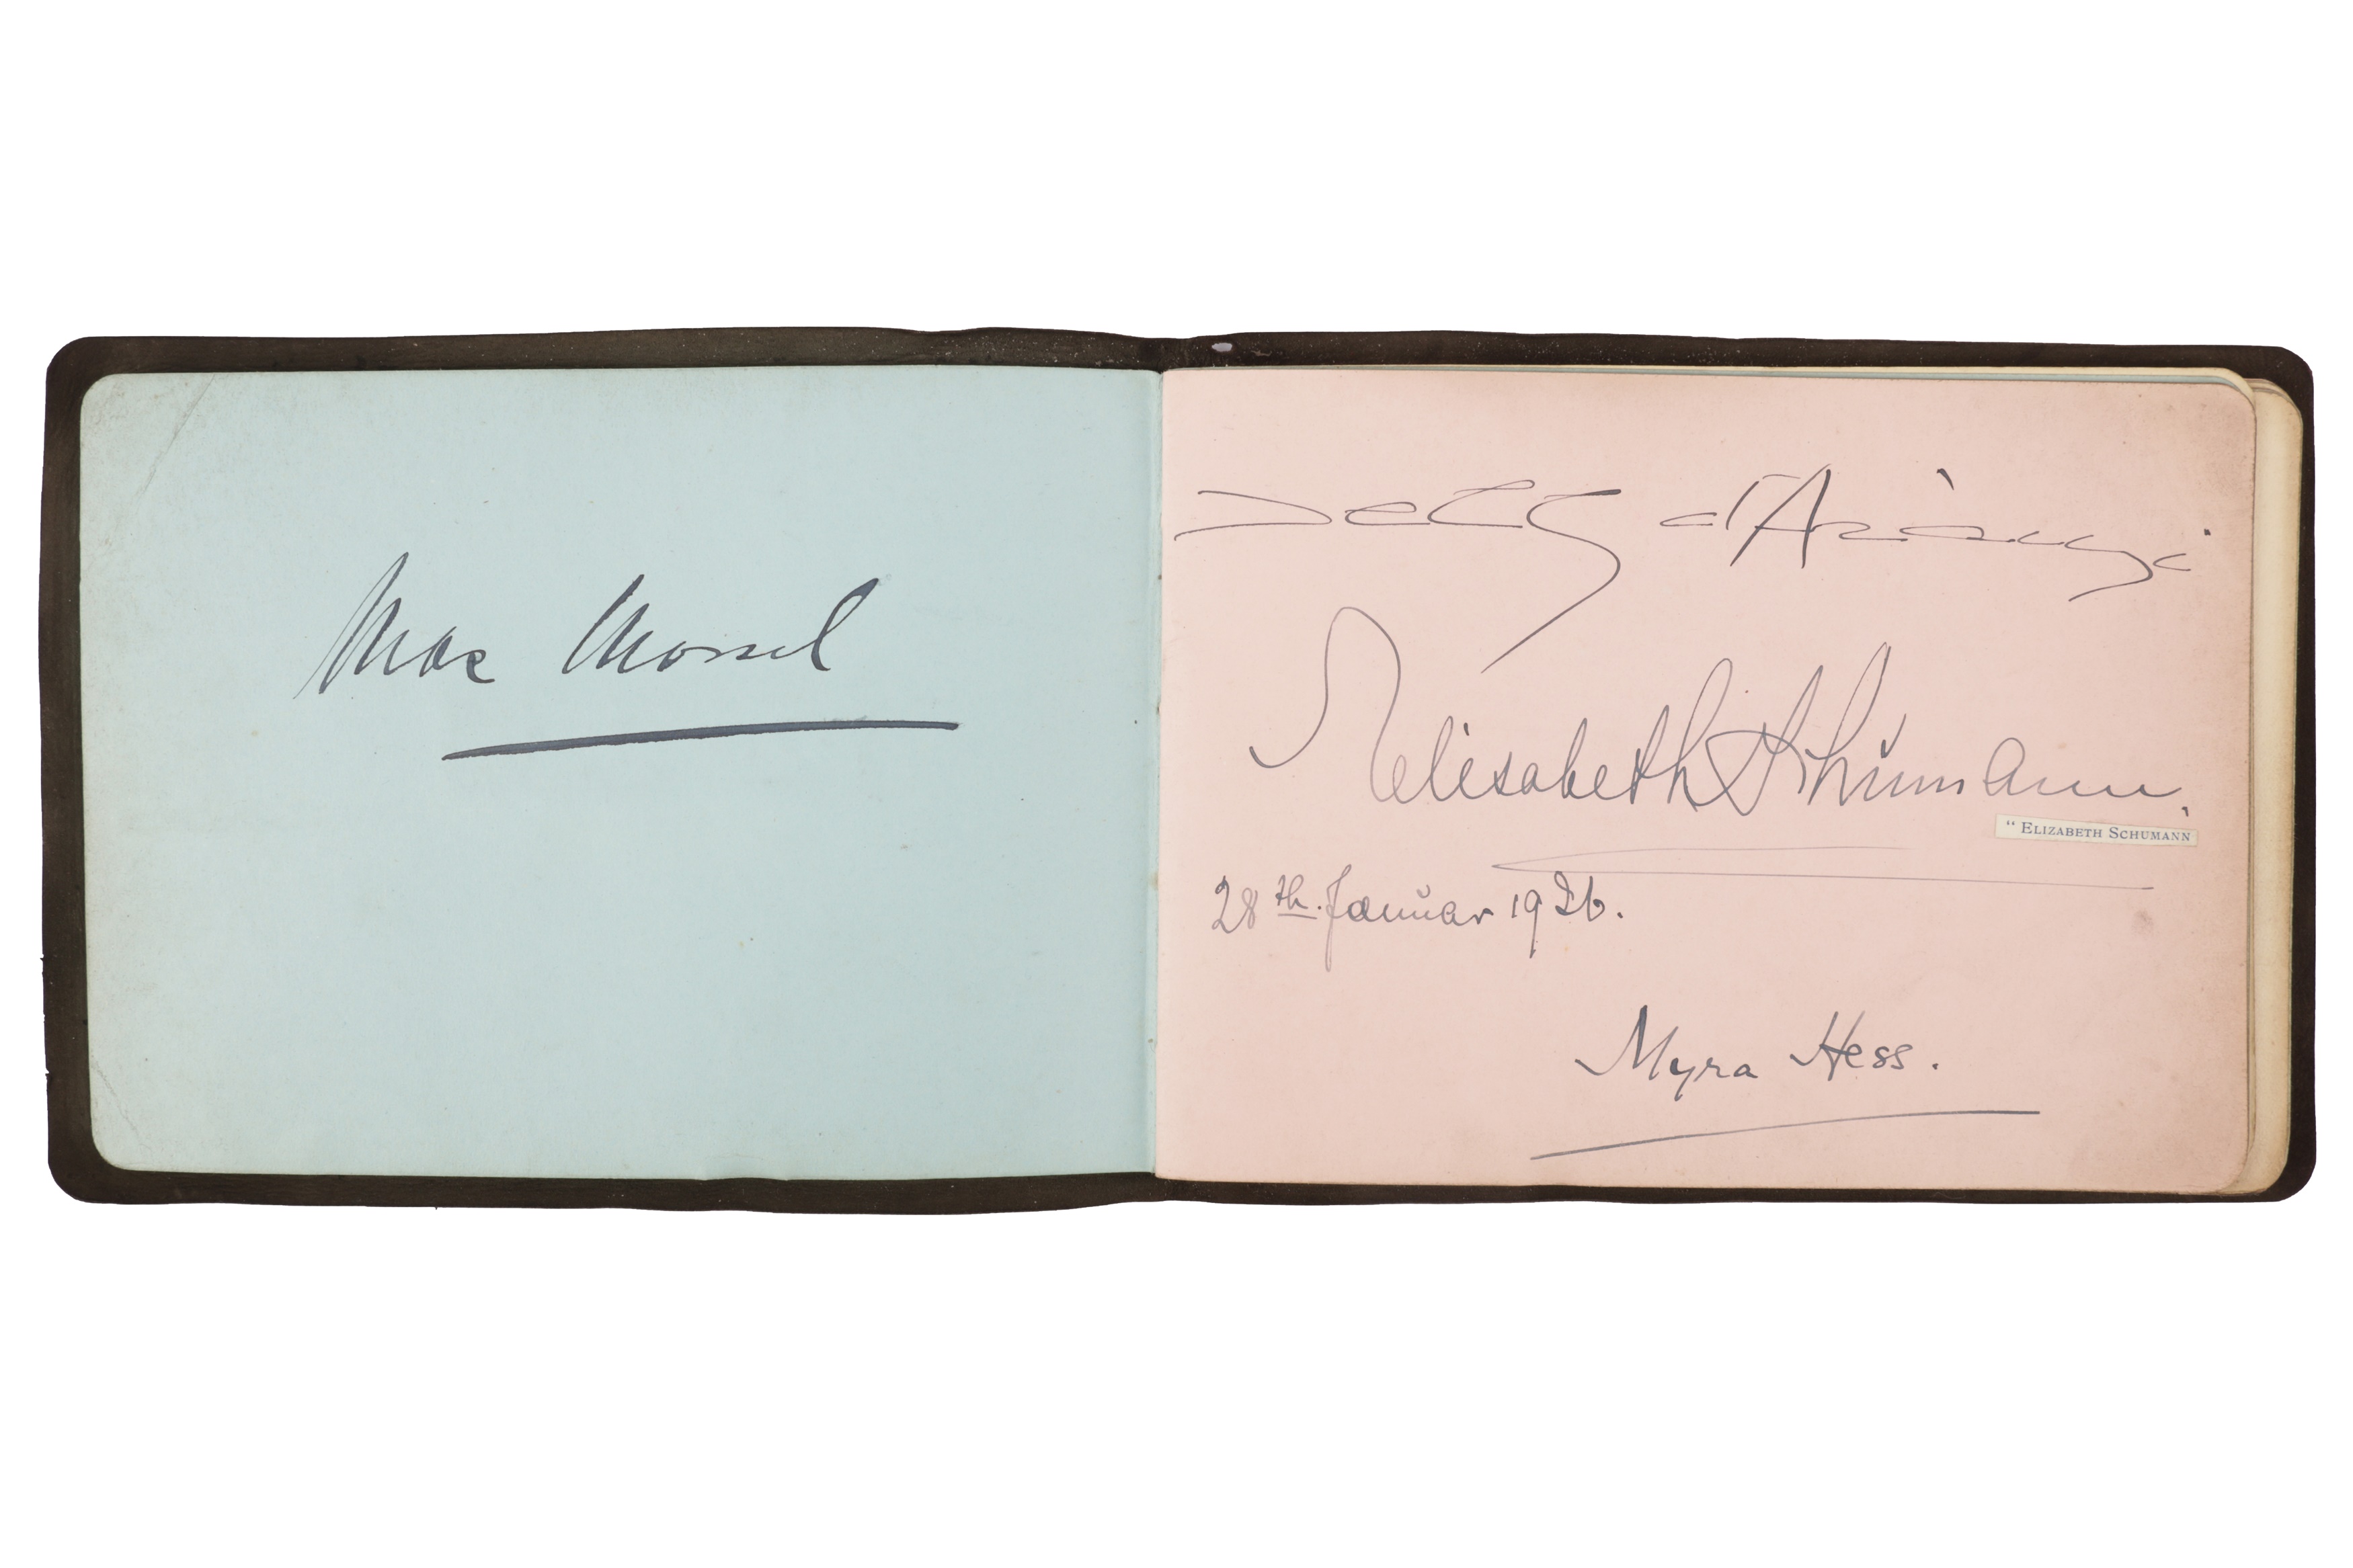 Max Mossel
Jelly d'Arànyi
Elisabeth Schumann.
“ ELIZABETH SCHUMANN
28th. Januar 1926.
Myra Hess.